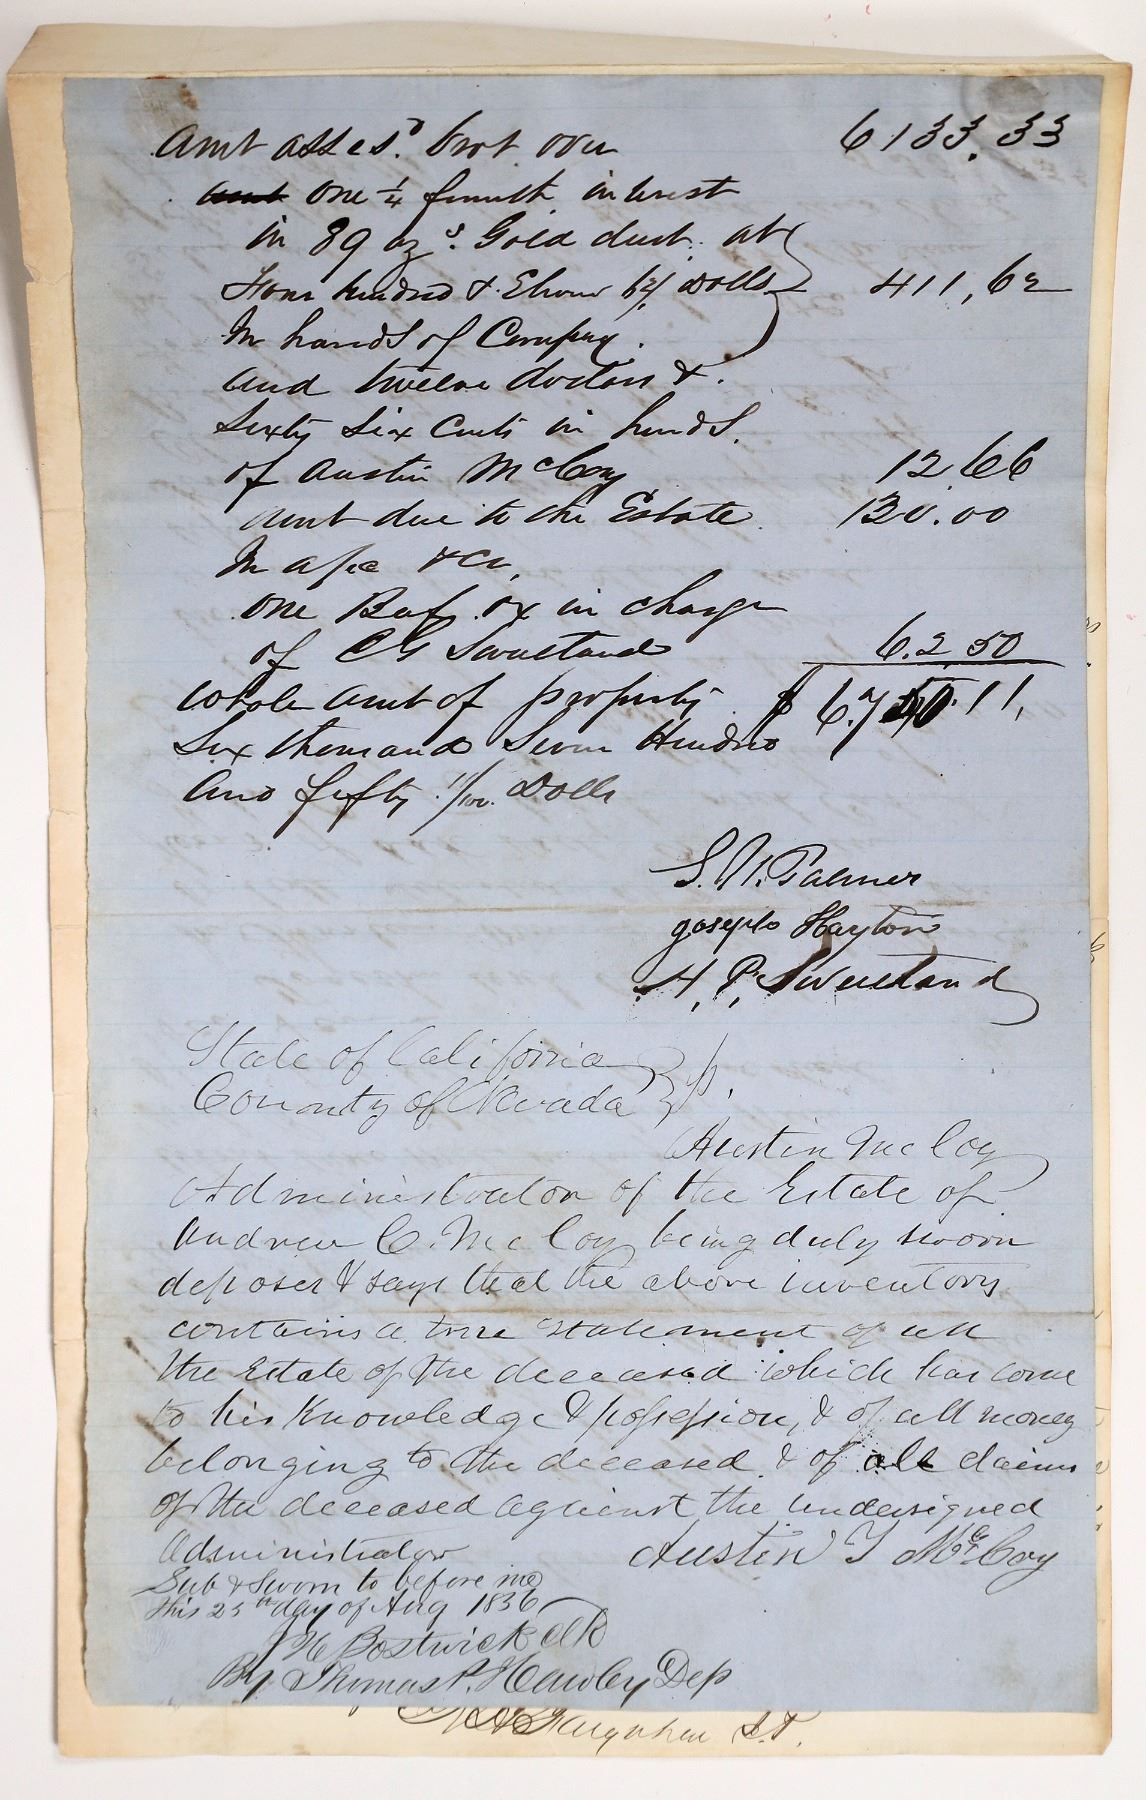 Amt assesd. brot over 6133.33
amt One ¼ fourth interest
in 89 ozs. Gold dust at
Four hundred & Eleven 62/ Dolls 411,62
In hands of Company.
and twelve dollars &
Sixty Six Cents in hands
of Austin McCoy 12.66
Amt due to the Estate 130.00
In a/cc &c,
One Beef ox in charge
of CG Sweetland 62.50
Whole amt of property $6,750.11,
Six thousand Seven Hundred
And fifty 11/100 Dolls
S. N. Palmer
Joseph Hayton
H. P. Sweetland
State of California
County of Nevada } ss.
Austin McCoy
Administrator of the Estate of
Andrew C. McCoy being duly sworn
deposes & says that the above inventory
contains a true statement of all
the Estate of the deceased which has come
to his Knowledge & possession, & of all money
belonging to the deceased & of all claims
of the deceased against the undersigned
Administrator Austin T McCoy
Sub & Sworn to before me
this 25th day of Aug 1856
Bostwick clk
By Thomas P. Hawley Dep